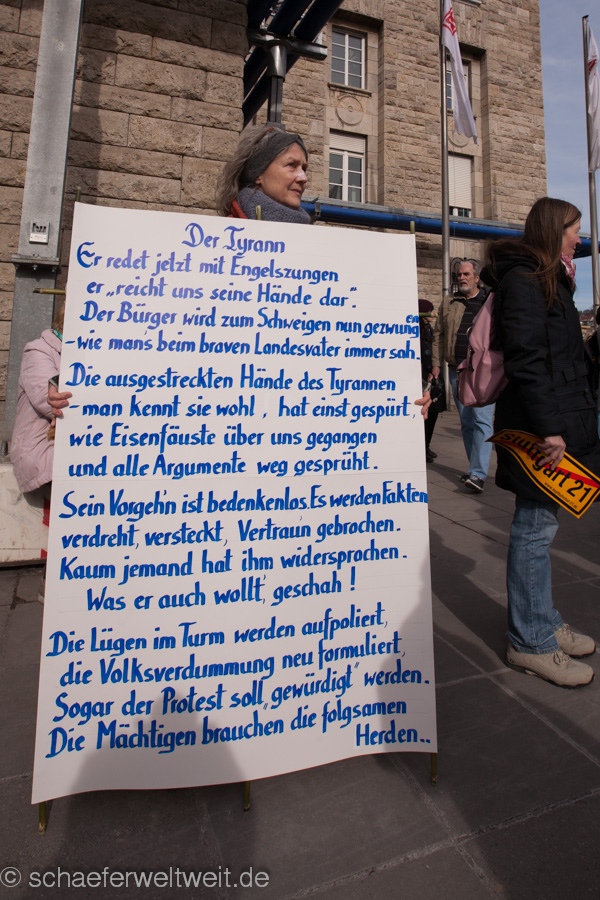 Der Tyrann
Er redet jetzt mit Engelszungen
er „reicht uns seine Hände dar".
Der Bürger wird zum Schweigen nun gezwungen
-wie mans beim braven Landesvater immer sah.
Die ausgestreckten Hände des Tyrannen
-man kennt sie wohl, hat einst gespürt,
wie Eisenfäuste über uns gegangen
und alle Argumente weg gesprüht.
Sein Vorgeh'n ist bedenkenlos. Es werden Fakten
verdreht, versteckt, Vertrau'n gebrochen.
Kaum jemand hat ihm widersprochen.
Was er auch wollt', geschah!
Die Lügen im Turm werden aufpoliert,
die Volksverdummung neu formuliert,
Sogar der Protest soll „gewürdigt" werden.
Die Mächtigen brauchen die folgsamen
Herden..
stuttgart 21
© schaeferweltweit.de